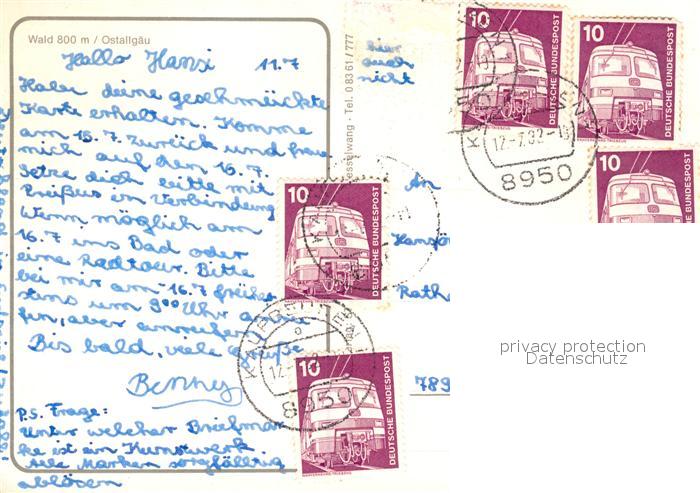 Wald 800 m / Ostallgäu
Hallo Hansi 11.7
Habe deine geschmückte
Karte erhalten. Komme
am 15.7. zurück und freue
mich auf den 16.7.
Setze dich bitte mit
in Verbindung
Wenn möglich am
16.7 ins Bad oder
eine Radtour. Bitte
bei mir am 16.7 frühe
stens um 9⁰⁰ Uhr
aber anrufen
Bis bald, viele Grüße
Benny
P.S. Frage:
Unter welcher Briefmar
ke ist ein Kunstwerk
Alle Marken sorgfältig
ablösen
Tel. 0 83 61 / 777
hier
auch
nicht
An
Rath
789
10
DEUTSCHE BUNDESPOST
10
DEUTSCHE BUNDESPOST
10
DEUTSCHE BUNDESPOST
10
DEUTSCHE BUNDESPOST
10
DEUTSCHE BUNDESPOST
KAUFBEUREN
12.-7.82
8950
KAUFBEUREN
8950
privacy protection
Datenschutz